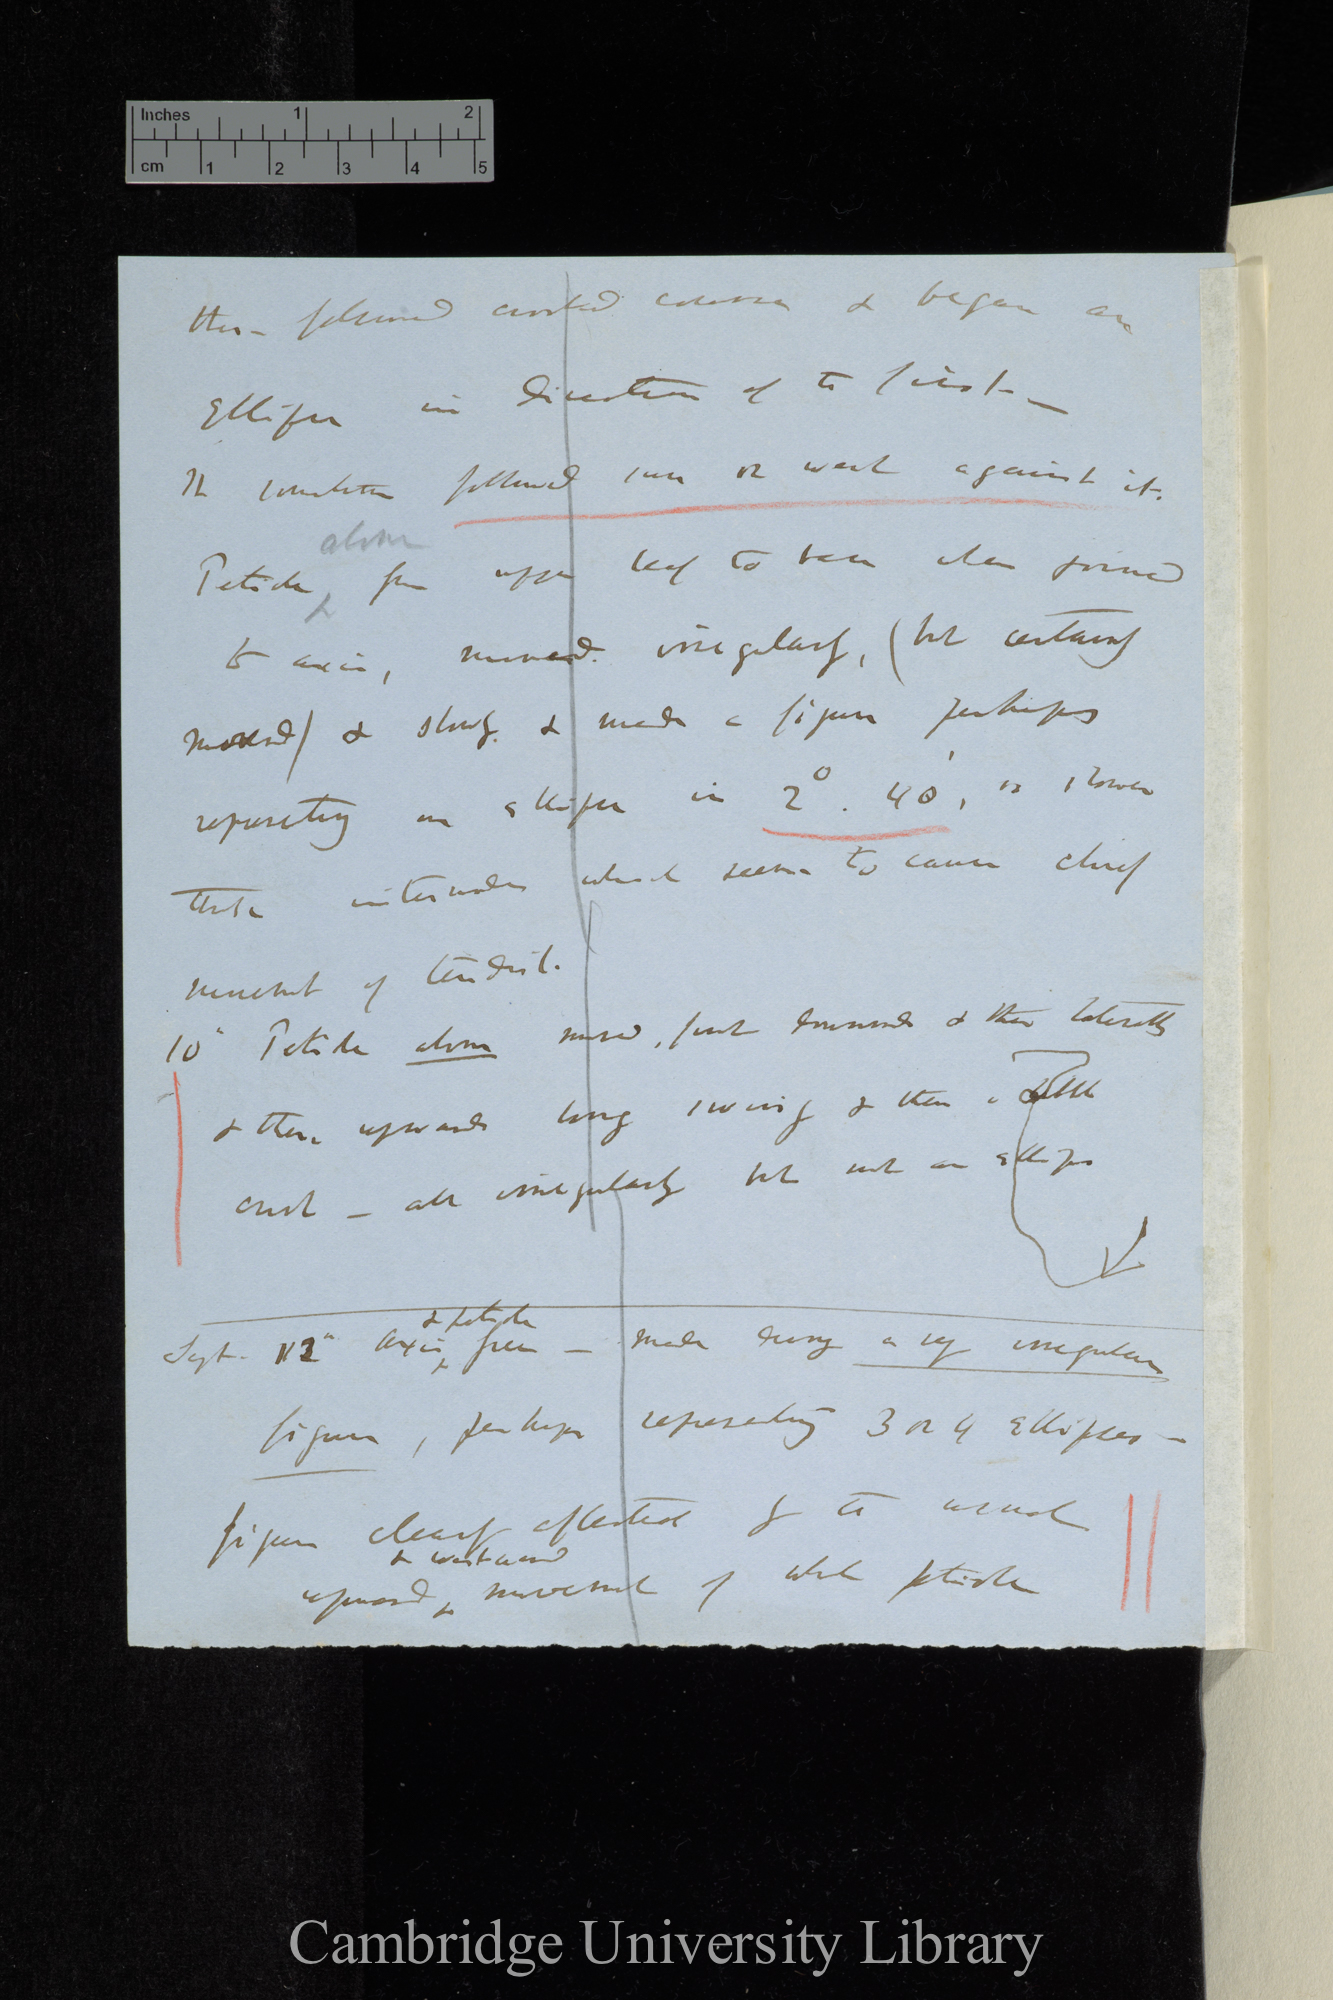 Inches 1 2
cm 1 2 3 4 5
then followed crooked course & began an
Ellipse in direction of the first —
It sometimes followed sun or went against it.
alone
Petiole from upper leaf to base when joined
to axis, moved irregularly, (but certainly
moved) & slowly & made a figure perhaps
representing an ellipse in 2° . 40', is slower
than internodes which seem to cause chief
movement of tendril.
10th Petiole alone moved, first downwards & then laterally
& then upwards long swing & then a little
— all irregularly but not an ellipse
& petiole
Sept. 12th axis free — made during a very irregular
figure, perhaps representing 3 or 4 Ellipses —
figure clearly affected by the usual
& westward
upward movement of whole petiole
Cambridge University Library